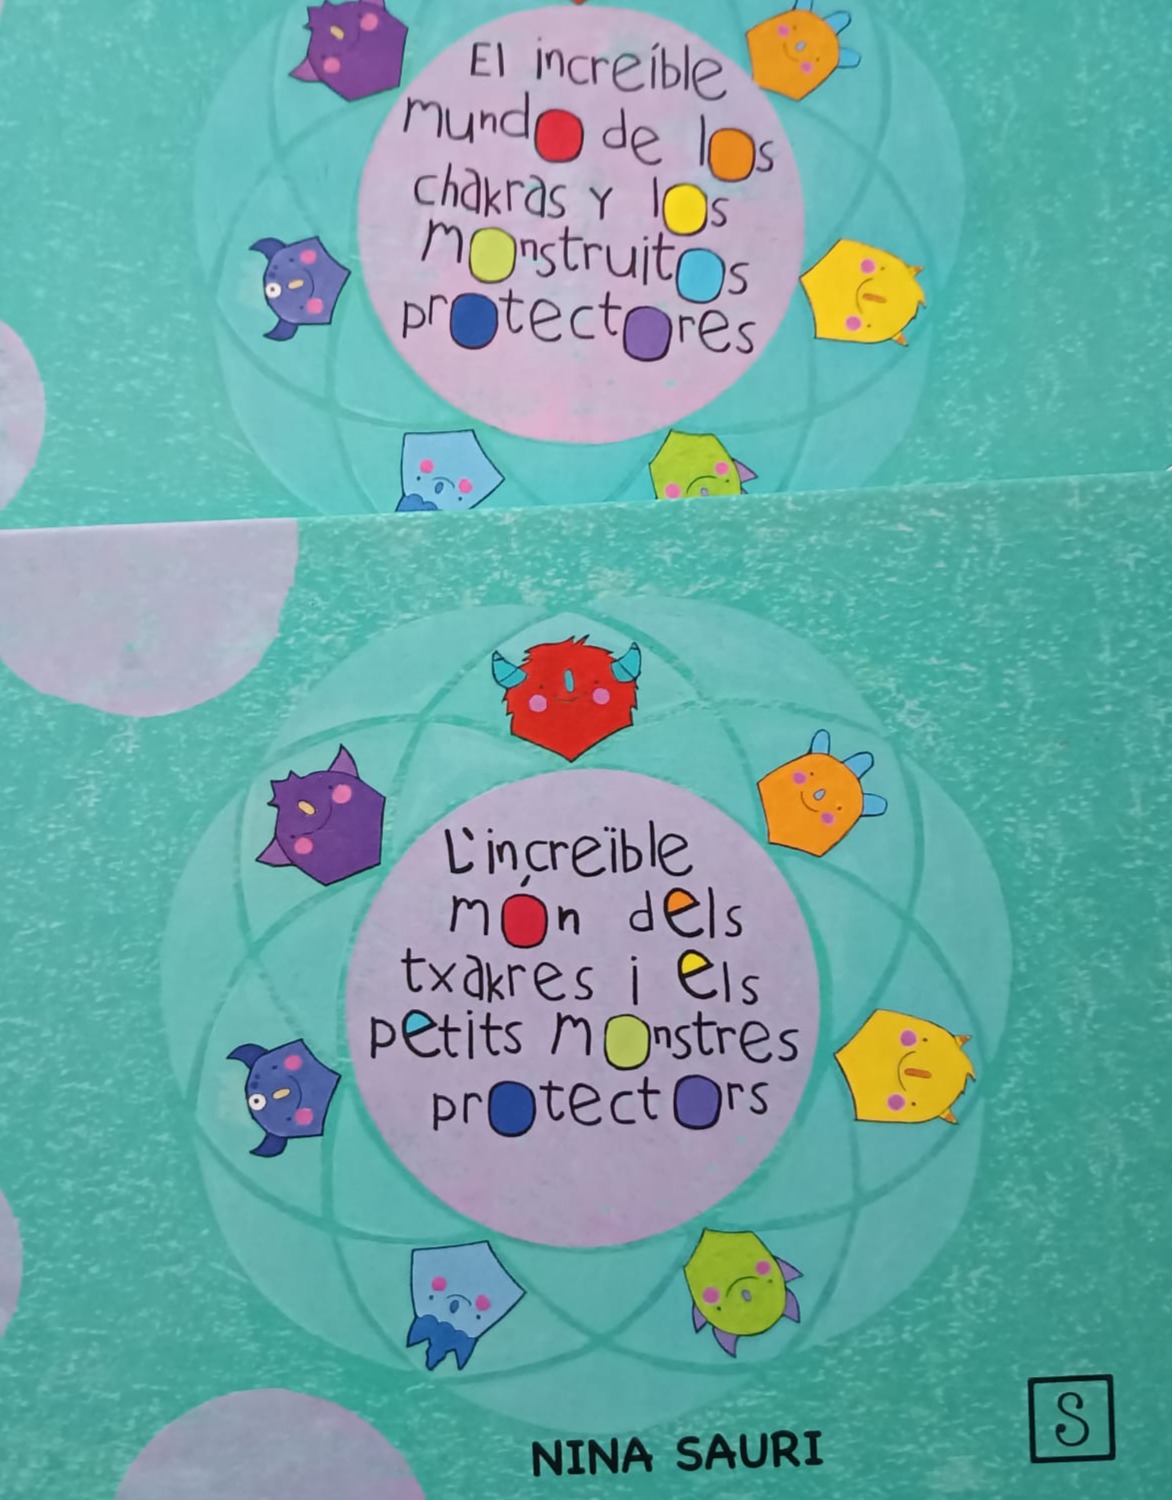 El increíble
mundo de los
chakras y los
monstruitos
protectores
L'increïble
món dels
txakres i els
petits monstres
protectors
NINA SAURI
S